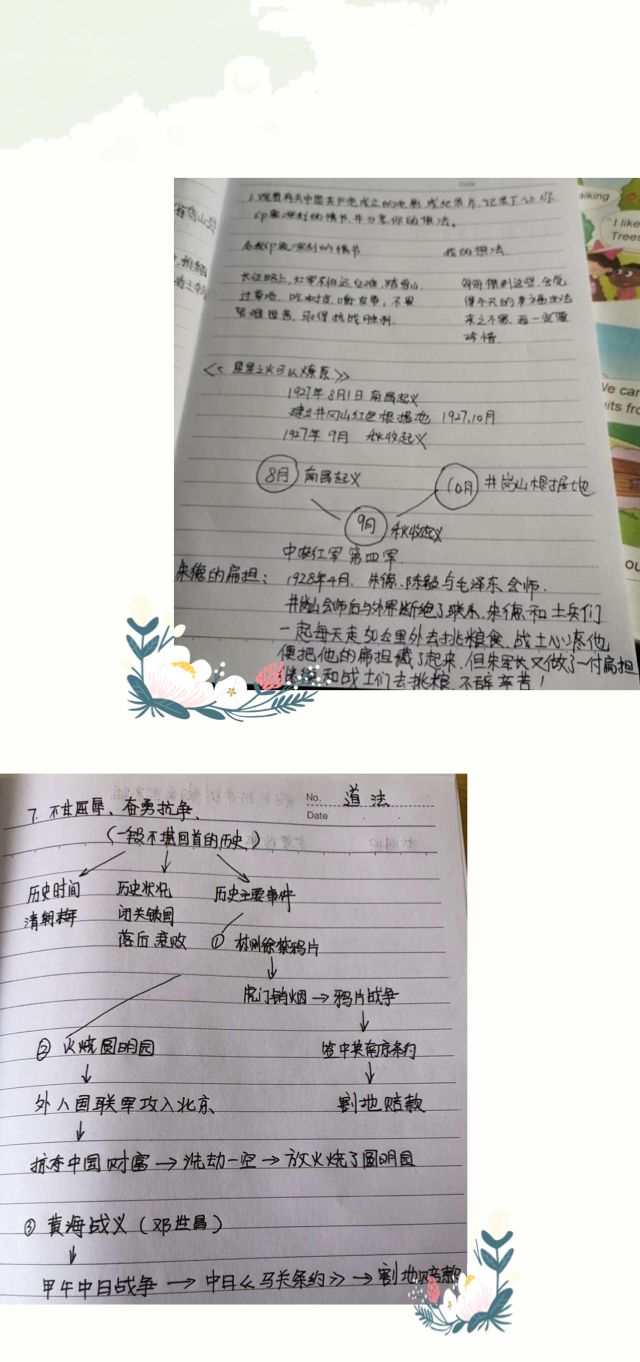 Date
1.观看有关中国共产党成立的电影或纪录片,记录了让你
印象深刻的情节,并分享你的想法。
令我印象深刻的情节
我的想法
长征路上,红军不怕远征难,踏雪山,
过草地,吃树皮啃皮带,不畏
艰难困苦,取得抗战胜利.
每每想到这些,会觉
得今天的幸福生活
来之不易,我一定要
珍惜.
<<星星之火可以燎原>>
1927年8月1日南昌起义
建立井冈山红色根据地 1927.10月
1927年9月 秋收起义
8月 南昌起义
10月 井岗山根据地
9月 秋收起义
中国红军第四军.
朱德的扁担:
1928年4月, 朱德、陈毅与毛泽东会师.
井岗山会师后与外界断绝了联系,朱德和士兵们
一起每天走50公里外去挑粮食,战士心疼他
便把他的扁担藏了起来,但朱军长又做了一付扁担
继续和战士们去挑粮,不辞辛苦!
alking
I like
Trees
We can
uits fro
ou
No. 道法
Date
7.不甘屈辱、奋勇抗争.
(一段不堪回首的历史)
历史时间 历史状况 历史主要事件
清朝晚年 闭关锁国
落后衰败 ① 林则徐禁鸦片
虎门销烟→鸦片战争
② 火烧圆明园
签中英南京条约
外人国联军攻入北京
割地赔款
掠夺中国财富→洗劫一空→放火烧了圆明园
③ 黄海战义(邓世昌)
甲午中日战争→中日《马关条约》→割地赔款